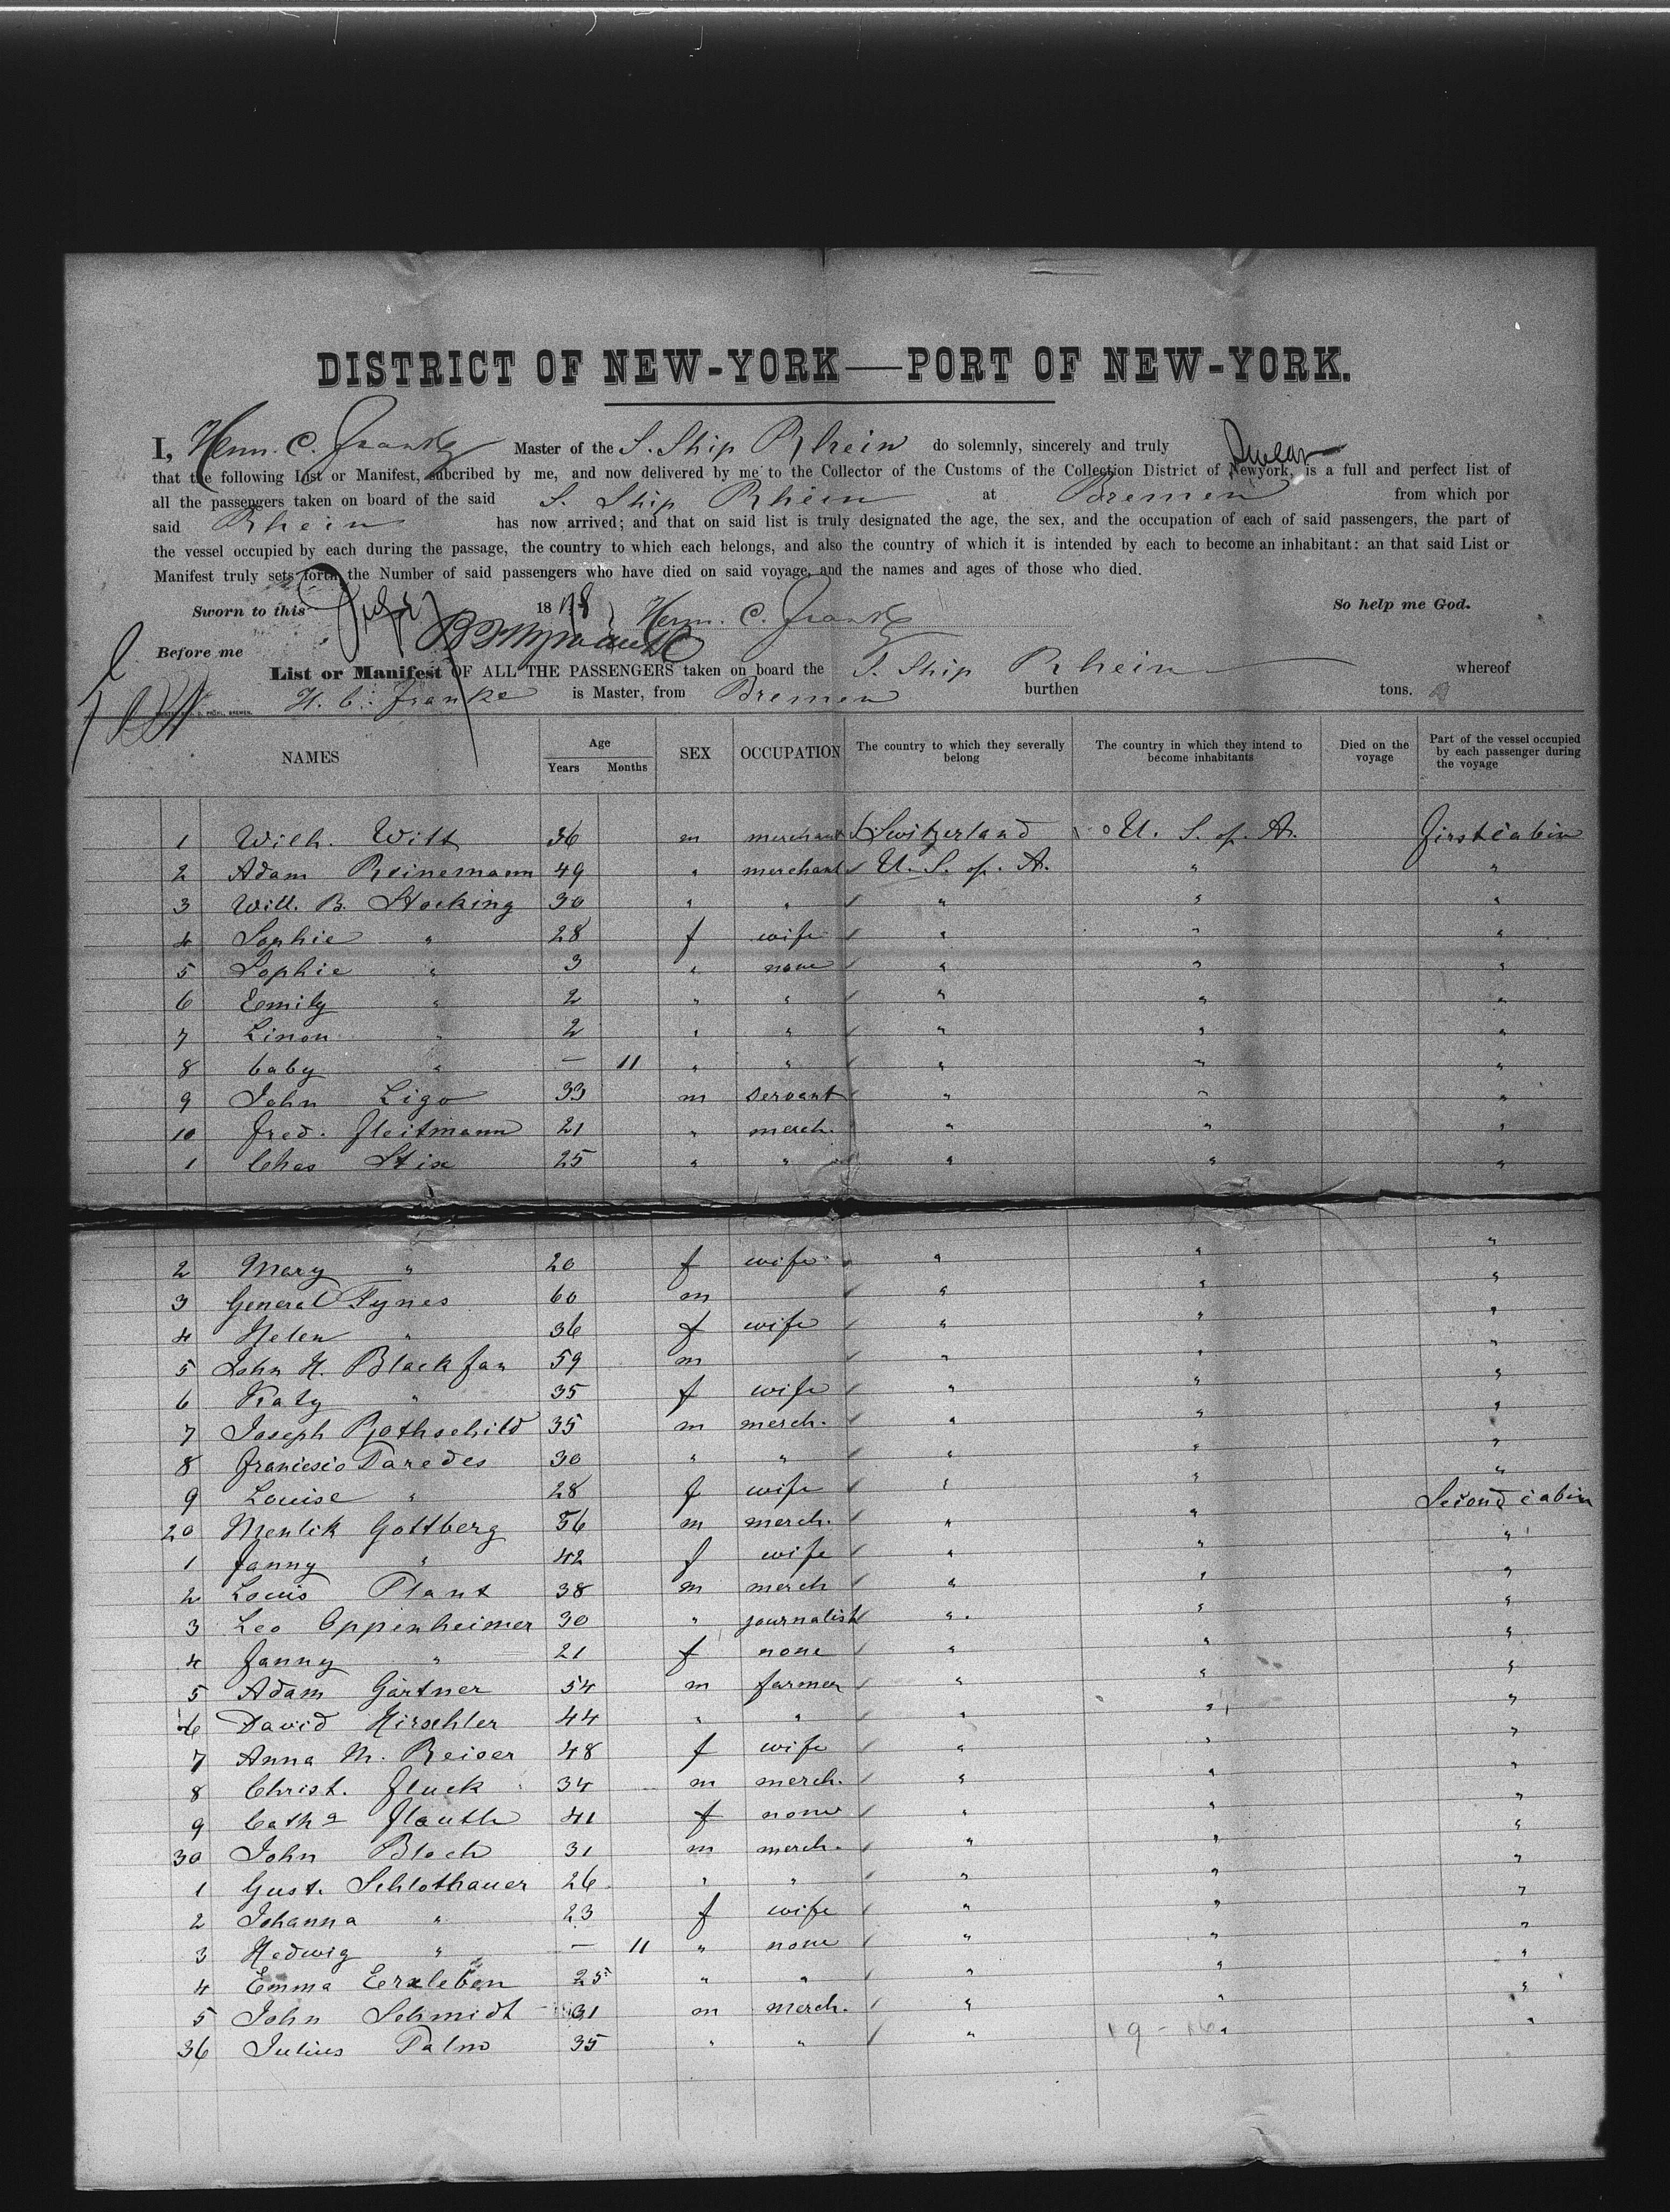 DISTRICT OF NEW-YORK—PORT OF NEW-YORK.
I, Herm. C. Franke Master of the S. Ship Rhein do solemnly, sincerely and truly Swear
that the following List or Manifest, subcribed by me, and now delivered by me to the Collector of the Customs of the Collection District of Newyork, is a full and perfect list of
all the passengers taken on board of the said S. Ship Rhein at Bremen from which por
said Rhein has now arrived; and that on said list is truly designated the age, the sex, and the occupation of each of said passengers, the part of
the vessel occupied by each during the passage, the country to which each belongs, and also the country of which it is intended by each to become an inhabitant: an that said List or
Manifest truly sets forth the Number of said passengers who have died on said voyage, and the names and ages of those who died.
Sworn to this July 1878 Herm. C. Franke So help me God.
Before me
List or Manifest OF ALL THE PASSENGERS taken on board the S. Ship Rhein whereof
H. C. Franke is Master, from Bremen burthen tons.
NAMES Age Years Months SEX OCCUPATION The country to which they severally belong The country in which they intend to become inhabitants Died on the voyage Part of the vessel occupied by each passenger during the voyage
1 Wilh. Witt 36 m merchant Switzerland U. S. of. A. first cabin
2 Adam Reinemann 49 " merchant U. S. of. A. " "
3 Will. B. Hocking 30 " " " " "
4 Sophie " 28 f wife " " "
5 Sophie " 3 " none " " "
6 Emily " 2 " " " " "
7 Linon " 2 " " " " "
8 baby " — 11 " " " " "
9 John Ligo 33 m servant " " "
10 Fred. Fleitmann 21 " merch. " " "
1 Chas Stix 25 " " " " "
2 Mary " 20 f wife " " "
3 General Fynes 60 m " " "
4 Helen " 36 f wife " " "
5 John H. Blackfan 59 m " " "
6 Katy " 35 f wife " " "
7 Joseph Rothschild 35 m merch. " " "
8 Franicsio Paredes 30 " " " " "
9 Louise " 28 f wife " " "
20 Menlik Gottberg 56 m merch. " " Second cabin
1 Fanny " 42 f wife " " "
2 Louis Plant 38 m merch " " "
3 Leo Oppenheimer 30 " journalist " " "
4 Fanny " 21 f none " " "
5 Adam Gärtner 54 m farmer " " "
6 David Hirschler 44 " " " " "
7 Anna M. Reiser 48 f wife " " "
8 Christ. Fluck 34 m merch. " " "
9 Catha Flauth 41 f none " " "
30 John Bloch 31 m merch. " " "
1 Gust. Schlothauer 26 " " " " "
2 Johanna " 23 f wife " " "
3 Hedwig " — 11 " none " " "
4 Emma Erxleben 25 " " " " "
5 John Schmidt 31 m merch. " " "
36 Julius Palm 35 " " " " "